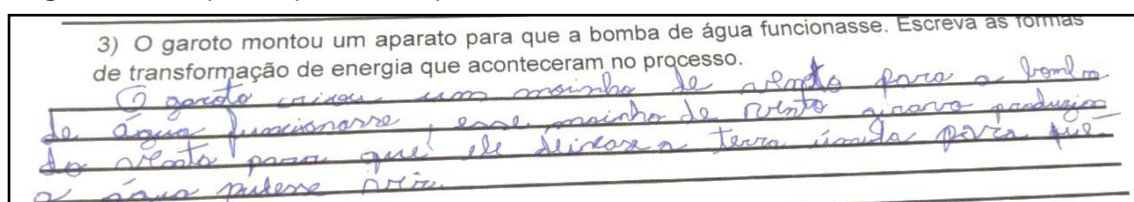 3) O garoto montou um aparato para que a bomba de água funcionasse. Escreva as formas
de transformação de energia que aconteceram no processo.
O garoto criou um moinho de vento para a bomba
de água funcionasse, esse moinho de vento girava
do vento para que ele deixasse a terra úmida para que
a água pudesse vir.